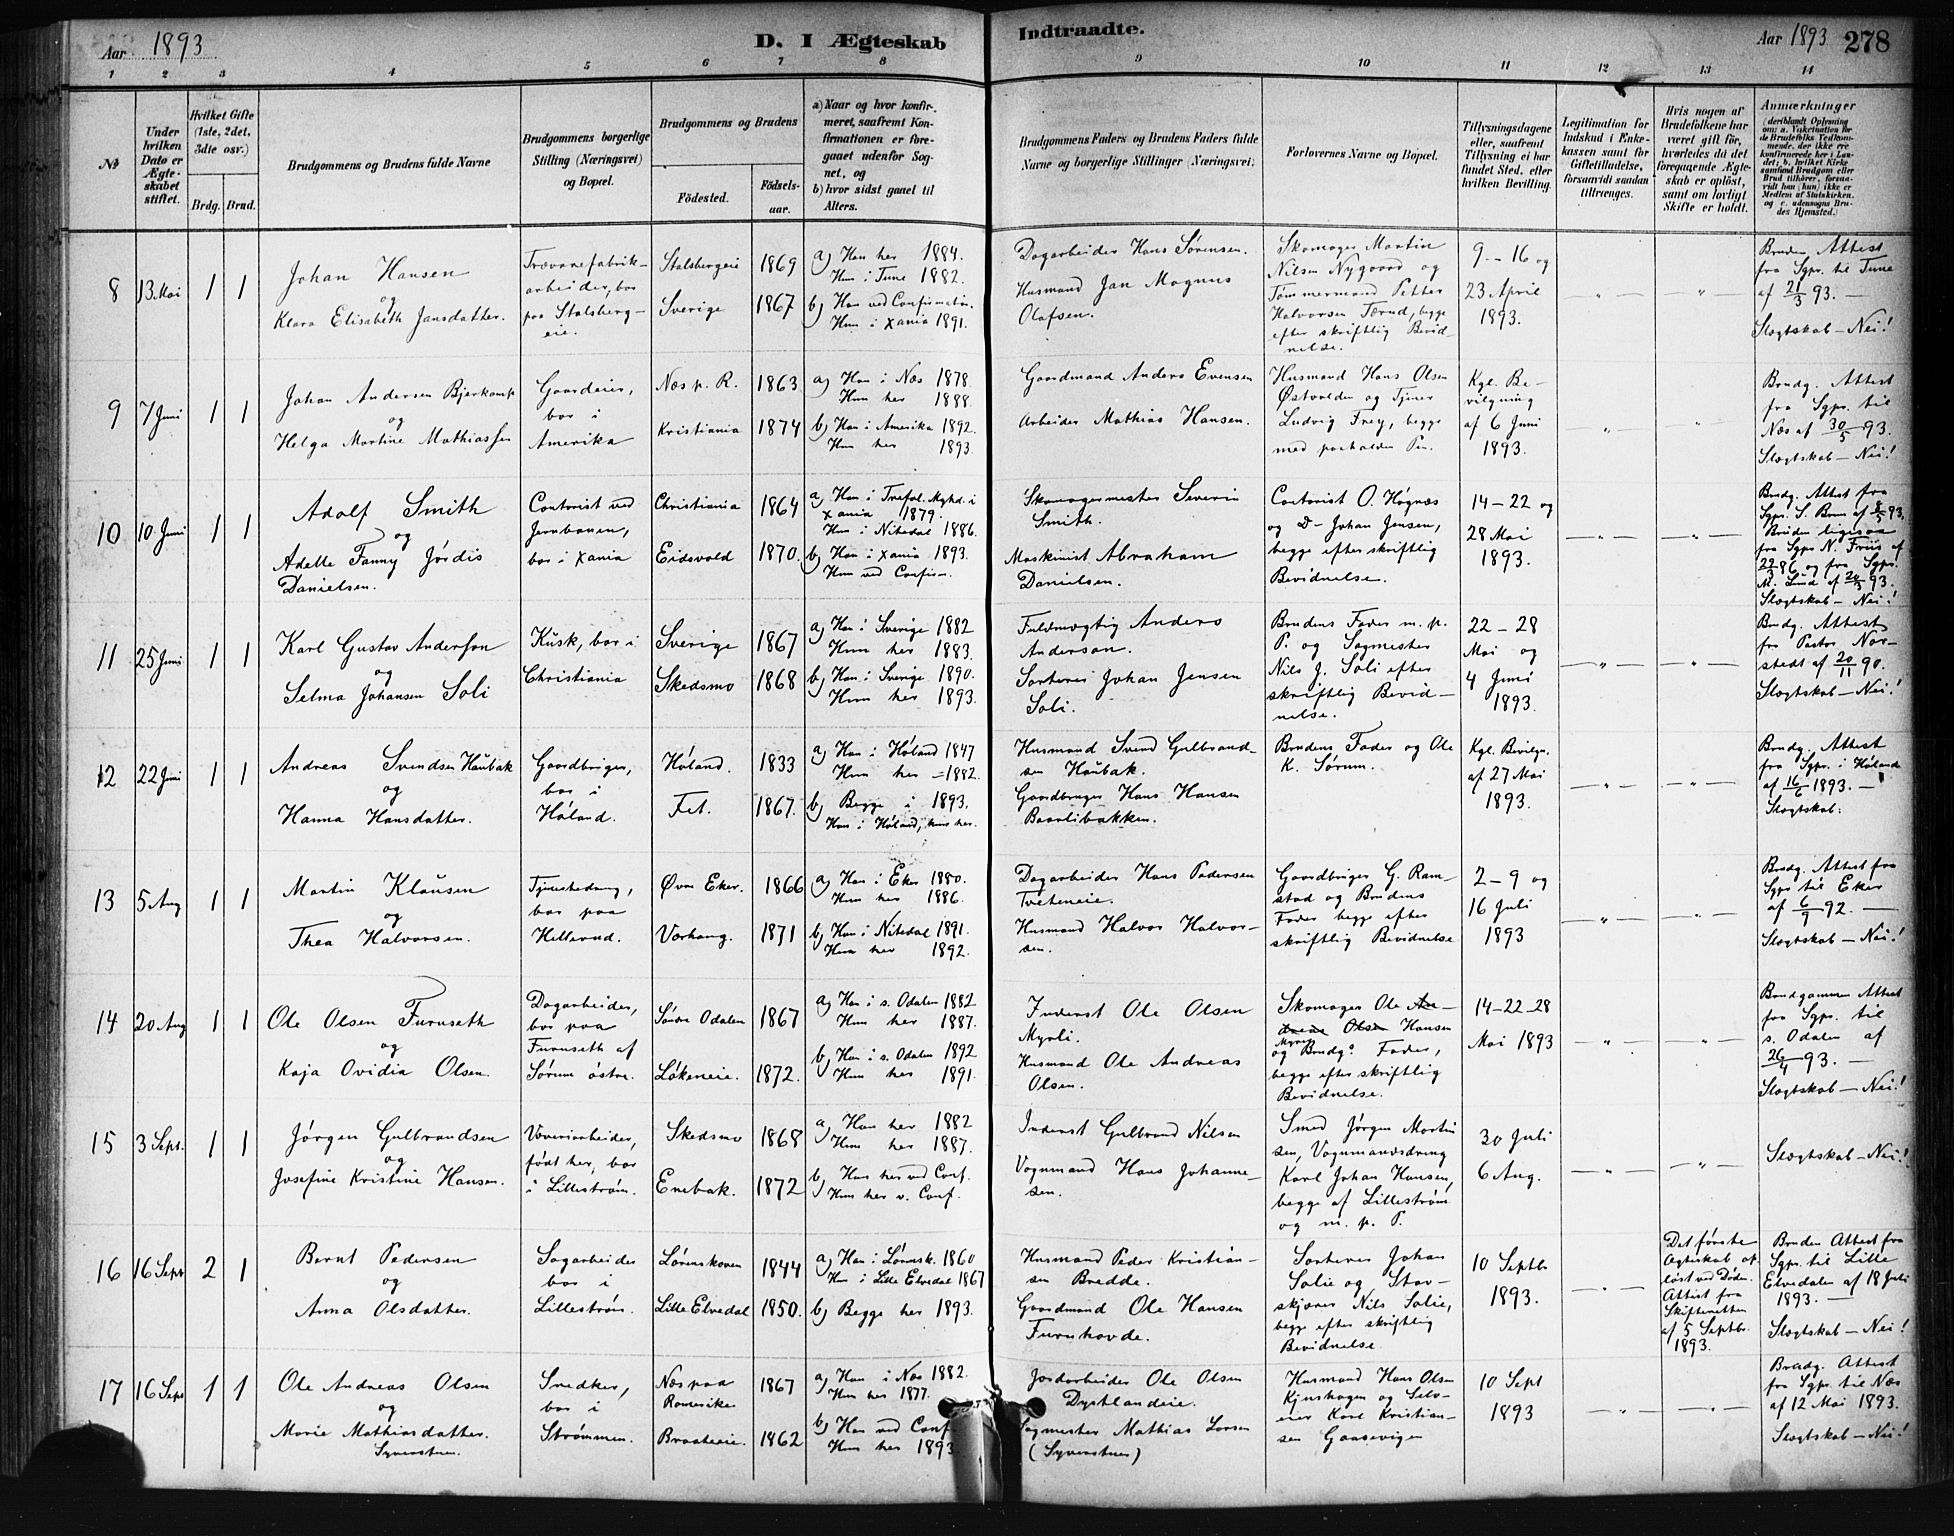 Aar 1893
D. I Ægteskab
Indtraadte.
Aar 1893
278
1 2 3 4 5 6 7 8 9 10 11 12 13 14
No
Under
hvilken
Dato er
Ægte-
skabet
stiftet.
Hvilket Gifte
(1ste, 2det,
3die osv.)
Brdg. Brud.
Brudgommens og Brudens fulde Navne
Brudgommens borgerlige
Stilling (Næringsvei)
og Bopæl.
Brudgommens og Brudens
Fødested.
Fødsels-
aar.
a) Naar og hvor konfir-
meret, saafremt Kon-
firmationen er fore-
gaaet udenfor Sog-
net, og
b) hvor sidst gaaet til
Alters.
Brudgommens Faders og Brudens Faders fulde
Navne og borgerlige Stillinger (Næringsvei).
Forlovernes Navne og Bopæl.
Tillysningsdagene
eller, saafremt
Tillysning ei har
fundet Sted, efter
hvilken Bevilling.
Legitimation for
Indskud i Enke-
kassen samt for
Giftetilladelse,
forsaavidt saadan
tiltrænges.
Hvis nogen af
Brudefolkene har
været gift før,
hvorledes da det
foregaaende Ægte-
skab er opløst,
samt om lovligt
Skifte er holdt.
Anmærkninger
(deriblandt Oplysning
om: a. Vakcination for
de Brudefolks Vedkom-
mende, der ikke ere
konfirmerede her i Lan-
det; b. hvilket Kirke-
samfund Brudgom eller
Brud tilhører, forsaa-
vidt han (hun) ikke er
Medlem af Statskirken,
og c. udensogns Bru-
des Hjemsted.)
8
13. Mai
1 1
Johan Hansen
og
Klara Elisabeth Jansdatter.
Trævarefabrik-
arbeider, bor
paa Stalsberg-
eie.
Stalsbergeie
Sverige
1869
1867
a) Han her 1884.
Hun i Tune 1882.
b) Han ved Confirmation.
Hun i Xania 1891.
Dagarbeider Hans Sørensen.
Husmand Jan Magnus
Olafsen.
Skomager Martin
Nilsen Nygaard og
Tømmermand Petter
Halvorsen Tærud, begge
efter skriftlig Bevid-
nelse.
9.-16 og
23 April
1893.
—„—
—„—
Bruden Attest
fra Sgpr. til Tune
af 21/3 93. —
Slægtskab - Nei!
9
7 Juni
1 1
Johan Andersen Bjerkamp
og
Helga Martine Mathiassen
Gaardeier,
bor i
Amerika
Næs p. R.
Kristiania
1863
1874
a) Han i Næs 1878.
Hun her 1888.
b) Han i Amerika 1892.
Hun her 1893.
Gaardmand Anders Evensen
Arbeider Mathias Hansen.
Husmand Hans Olsen
Østvolden og Tjener
Ludvig Frey, begge
med paaholden Pen.
Kgl. Be-
vilgning
af 6 Juni
1893.
—„—
—„—
Brudg. Attest
fra Sgpr. til
Næs af 30/5 93.
Slægtskab - Nei!
10
10 Juni
1 1
Adolf Smith
og
Adelle Fanny Jørdis
Danielsen.
Contorist ved
Jernbanen,
bor i Xania
Christiania
Eidsvold
1864
1870.
a) Han i Trefol. Mghd. i
Xania 1879.
Hun i Nitedal 1886.
b) Han i Xania 1893.
Hun ved Confirm.
Skomagermester Severin
Smith.
Maskinist Abraham
Danielsen.
Contorist O. Høgnæs
og D- Johan Jensen,
begge efter skriftlig
Bevidnelse.
14-22 og
28 Mai
1893.
—„—
—„—
Brudg. Attest fra
Sgpr. S. Brun af 8/5 93,
Bruden ligesaa
fra Sgpr N. Friis af
22/3 86 og fra Sgpr.
M. Lund af 20/3 93.
Slægtskab - Nei!
11
25 Juni
1 1
Karl Gustav Anderson
og
Selma Johansen Soli
Kusk, bor i
Christiania
Sverige
Skedsmo
1867
1868
a) Han i Sverige 1882
Hun her 1883.
b) Han i Sverige 1890.
Hun her 1893.
Fuldmægtig Anders
Anderson.
Sorterer Johan Jensen
Soli.
Brudens Fader m. p.
P. og Sagmester
Nils J. Soli efter
skriftlig Bevid-
nelse.
22-28
Mai og
4 Juni
1893.
—„—
—„—
Brudg. Attest
fra Pastor Nor-
stedt af 20/11 90.
Slægtskab - Nei!
12
22 Juni
1 1
Andreas Svendsen Haubak
og
Hanna Hansdatter.
Gaardbruger,
bor i
Høland.
Høland.
Fet.
1833
1867.
a) Han i Høland 1847
Hun her - 1882.
b) Begge i 1893.
Han i Høland, hun her.
Husmand Svend Gulbrand-
sen Haubak.
Gaardbruger Hans Hansen
Baarlibakken.
Brudens Fader og Ole
K. Sørum.
Kgl. Bevilgn.
af 27 Mai
1893.
—„—
—„—
Brudg. Attest
fra Sgpr. i Høland
af 16/6 1893. —
Slægtskab:
13
5 Aug
1 1
Martin Klausen
og
Thea Halvorsen.
Tjenestedreng,
bor paa
Hellerud.
Øvre Eker.
Varhaug.
1866
1871
a) Han i Eker 1880.
Hun her 1886.
b) Han i Nitedal 1891.
Hun her 1892.
Dagarbeider Hans Pedersen
Tveteneie.
Husmand Halvor Halvor-
sen.
Gaardbruger G. Ram-
stad og Brudens
Fader begge efter
skriftlig Bevidnelse
2-9 og
16 Juli
1893
—„—
—„—
Brudg. Attest fra
Sgpr til Eker
af 6/9 92. —
Slægtskab - Nei!
14
20 Aug
1 1
Ole Olsen Furuseth
og
Kaja Ovidia Olsen.
Dagarbeider,
bor paa
Furuseth af
Sørum østre.
Søndre Odalen
Løkeneie.
1867
1872.
a) Han i s. Odalen 1882
Hun her 1887.
b) Han i s. Odalen 1892
Hun her 1891.
Inderst Ole Olsen
Myrli.
Husmand Ole Andreas
Olsen.
Skomager Ole An-
dreas Olsen Hansen
og Brudgs. Fader,
begge efter skriftlig
Bevidnelse.
14-22-28
Mai 1893
—„—
—„—
Brudgommen Attest
fra Sgpr. til
s. Odalen af
26/4 93. —
Slægtskab - Nei!
15
3 Sept.
1 1
Jørgen Gulbrandsen
og
Josefine Kristine Hansen.
Væveriarbeider,
født her, bor
i Lillestrøm.
Skedsmo
Enebak.
1868
1872
a) Han her 1882
Hun her 1887.
b) Han her ved Conf.
Hun her v. Conf.
Inderst Gulbrand Nilsen
Vognmand Hans Johanne-
sen.
Smed Jørgen Martin
sen, Vognmandsdreng
Karl Johan Hansen,
begge af Lillestrøm
og m. p. P.
30 Juli
6 Aug.
—„—
—„—
Slægtskab - Nei!
16
16 Sept
2 1
Bernt Pedersen
og
Anna Olsdatter.
Sagarbeider
bor i
Lillestrøm.
Lørenskoven
Lille Elvedal
1844
1850.
a) Han i Lørensk. 1860
Hun i Lille Elvedal 1867
b) Begge her 1893.
Husmand Peder Kristian-
sen Bredde.
Gaardmand Ole Hansen
Furuhovde.
Sorterer Johan
Solie og Stav-
skjærer Nils Solie,
begge efter skriftlig
Bevidnelse
10 Septbr
1893.
—„—
Det første
Ægteskab op
løst ved Døden.
Attest fra
Skifteretten
af 5 Septbr.
1893.
Bruden Attest fra
Sgpr. til Lille
Elvedalen af 18 Juli
1893. —
Slægtskab - Nei!
17
16 Sept
1 1
Ole Andreas Olsen
og
Marie Mathiasdatter.
Syverstuen.
Snedker,
bor i
Strømmen.
Næs paa
Romerike
Braateeie.
1867
1862
a) Han i Næs 1882.
Hun her 1877.
b) Han ved Conf
Hun her 1893
Jordarbeider Ole Olsen
Dystlandeie.
Sagmester Mathias Larsen
(Syverstuen)
Husmand Hans Olsen
Kjushagen og Selv-
eier Karl Kristian-
sen Gaasevigen
10 Sept
1893
—„—
—„—
Brudg. Attest
fra Sgpr. til Næs
af 12 Mai 1893.
Slægtskab - Nei!